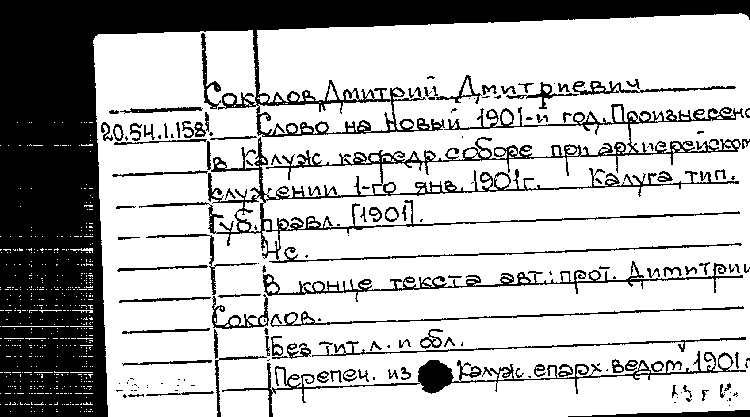 Соколов, Дмитрий Дмитриевич
20.54.1.158. Слово на Новый 1901-й год. Произнесено
в Калуж. кафедр. соборе при архиерейском
служении 1-го янв. 1901г. Калуга, тип.
Губ. правл. [1901].
4с.
В конце текста авт.: прот. Димитрий
Соколов.
Без тит. л. и обл.
Перепеч. из Калуж. епарх. ведом, 1901г.